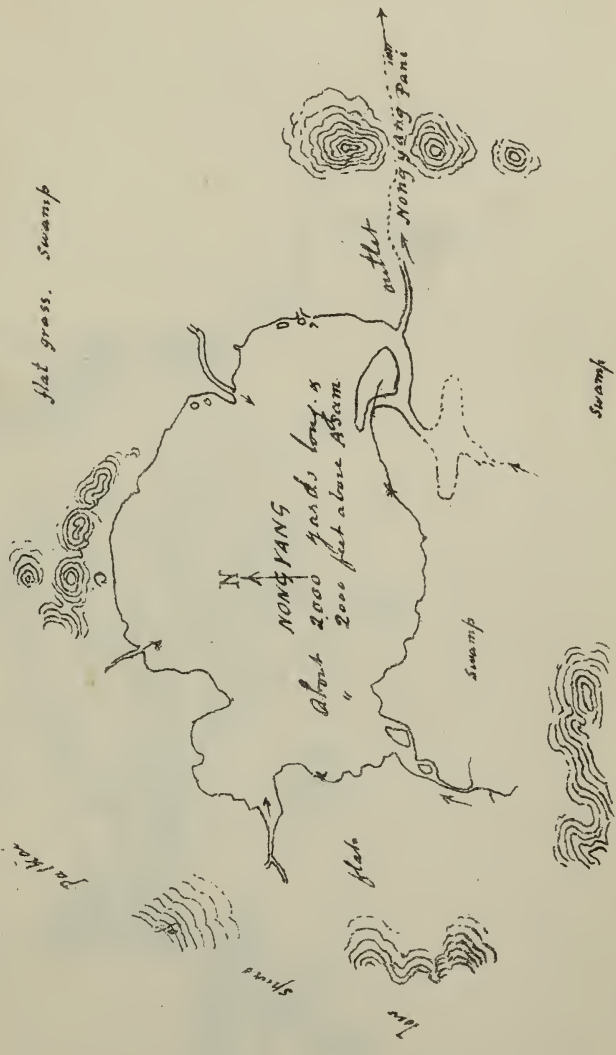 flat grass. swamp
C
N
NONGYANG
About 2000 yards long. &
" 2000 feet above Asam
outlet
Nongyang Pani
swamp
swamp
flat
Low
spurs
Patkoi